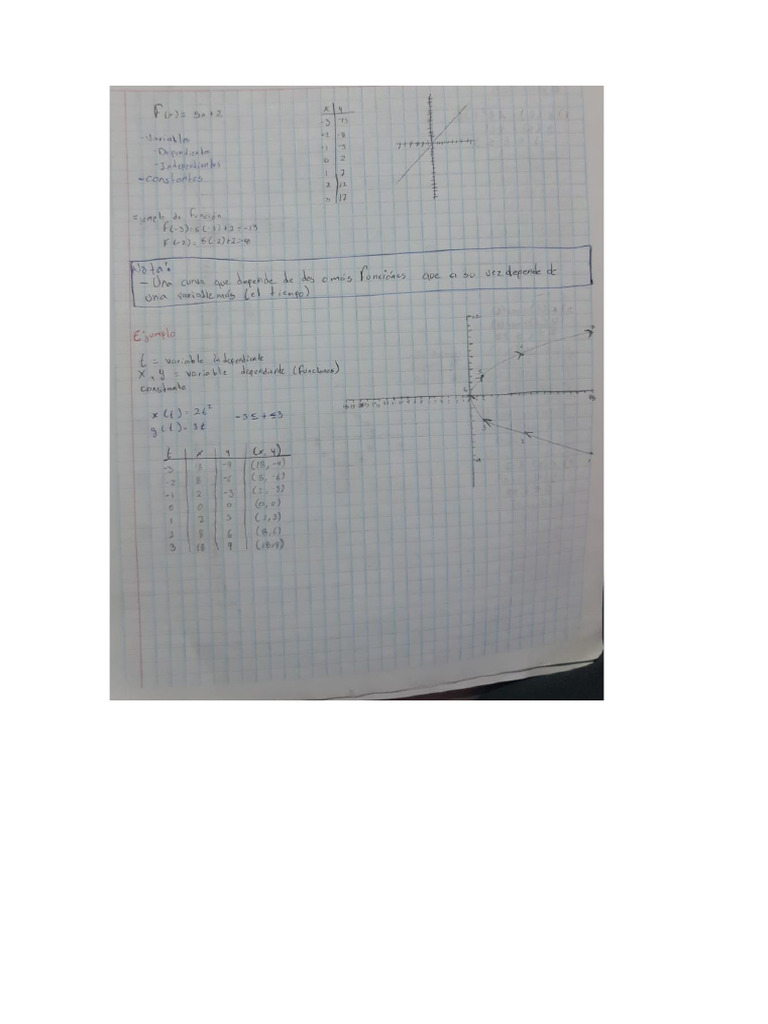 F(x) = 5x+2
x | y
-3 | -13
-2 | -8
-1 | -3
0 | 2
1 | 7
2 | 12
3 | 17
-Variable
-Dependientes
-Independientes
-Constantes
Ejemplo de Función
F(-3)=5(-3)+2=-13
F(-2)=5(-2)+2=-8
Nota:
- Una curva que depende de dos o más Funciónes que a su vez depende de
una variable más (el tiempo)
Ejemplo
t = variable independiente
x, y = variable dependiente (Funciones)
constante
x(t)=2t² -3≤t≤3
y(t)=3t
t | x | y | (x, y)
-3 | 18 | -9 | (18, -9)
-2 | 8 | -6 | (8, -6)
-1 | 2 | -3 | (2, -3)
0 | 0 | 0 | (0, 0)
1 | 2 | 3 | (2, 3)
2 | 8 | 6 | (8, 6)
3 | 18 | 9 | (18, 9)